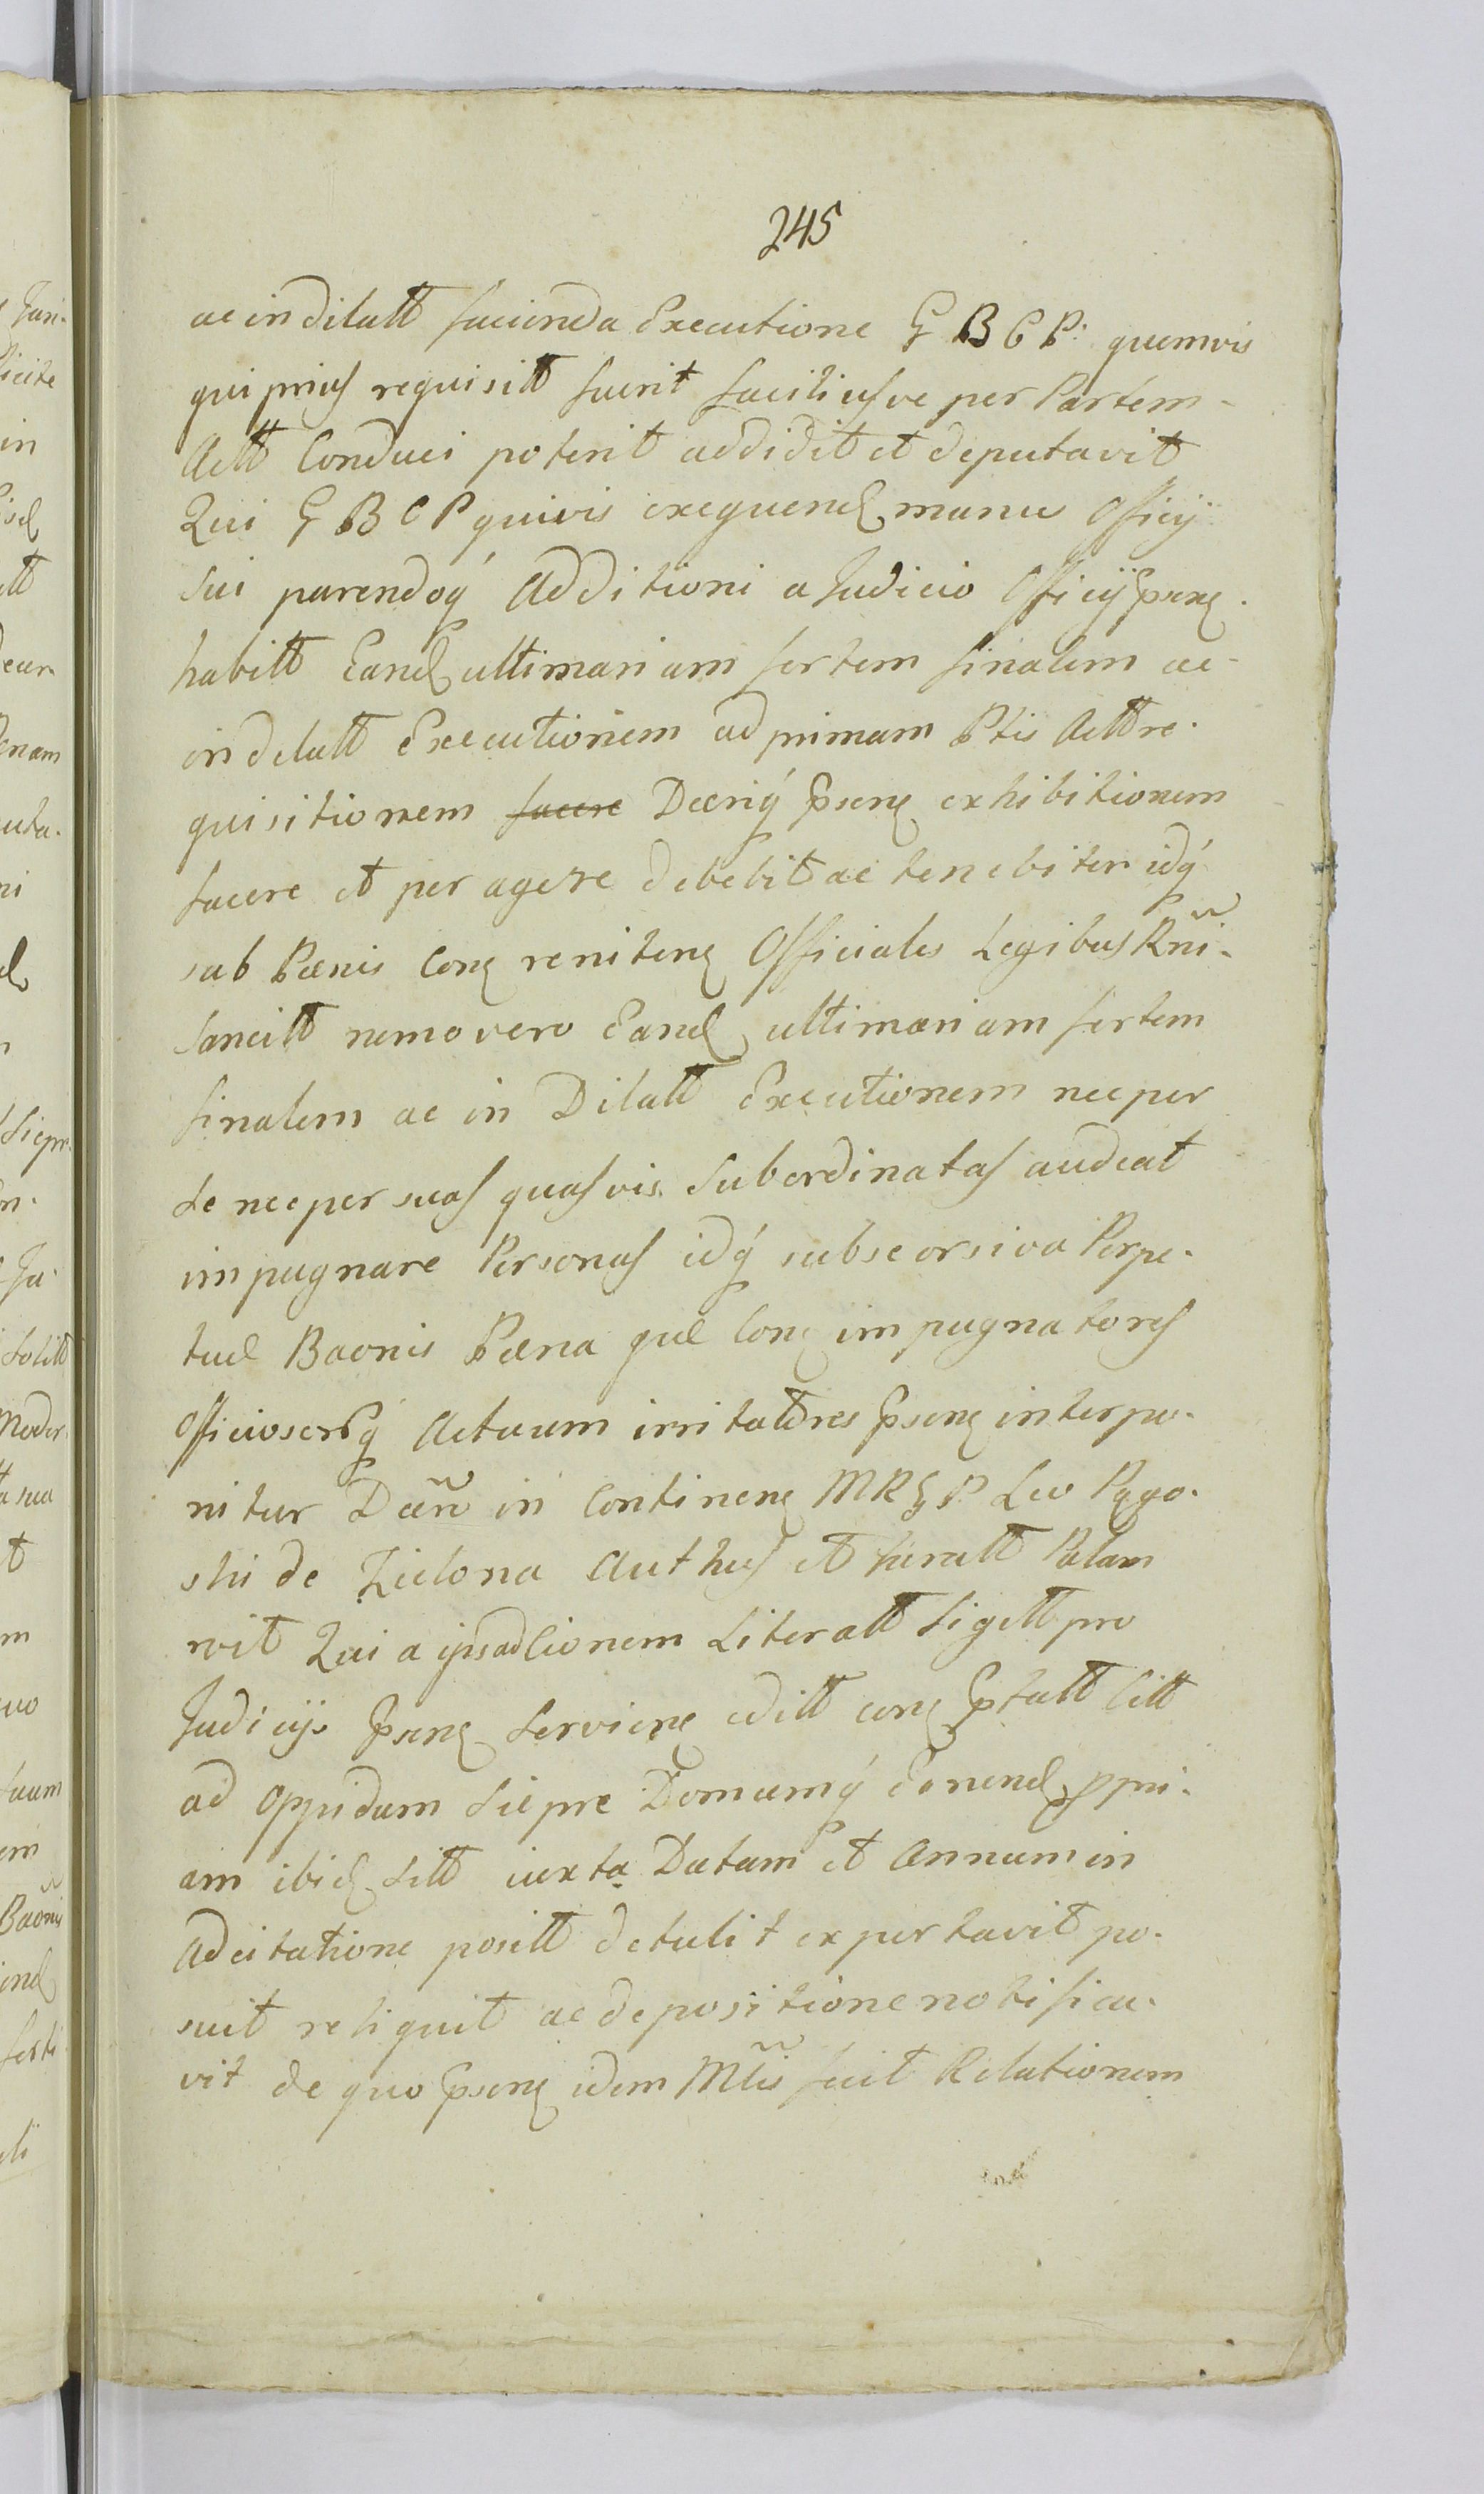 245
ac in dilatt facienda Executione G B C P. quemvis
qui prius requisitt fuerit faciliusve per Partem
Actt Conduci poterit addidit et deputavit
Qui G B C P quivis exequend munu Officij
sui parendoq́ Additioni a Judicio Officij Psens
habitt Eand ultimariam fortem finalem ac
in dilatt Executionem ad primam Ptis Actt re
quisitionem facere Decriq́ Psens exhibitionem
facere et peragere debebit ac tenebitur idq́
sub Pœnis Cont renitent Officiales Legibus Rñi
Sancitt nemo vero Eand ultimariam fortem
finalem ac in Dilatt Executionem nec per
se nec per suas quasvis Subordinatas audeat
impugnare Personas idq́ sub seorsiva Perpe
tuæ Baonis Pœna quæ Cont impugnatores
Officiosorq́ Actuum irritatores Psens interpo
nitur Decr̃ in Continent MRGP. Leo Rogo
ski de Zielona Authus et Juratt Palam
vit Qui a ipsad Cionem Literatt Sigett pro
Judicijs Psens Servient editt cont Ptatt Citt
ad Oppidum Siepre Domumq́ Eorund ppri
am ibid Sitt iuxta Datam et Annum in
Adcitatione positt detulit exportavit po
suit reliquit ac de positione notifica
vit de quo Psens idem Mtis̃ fecit Relationem